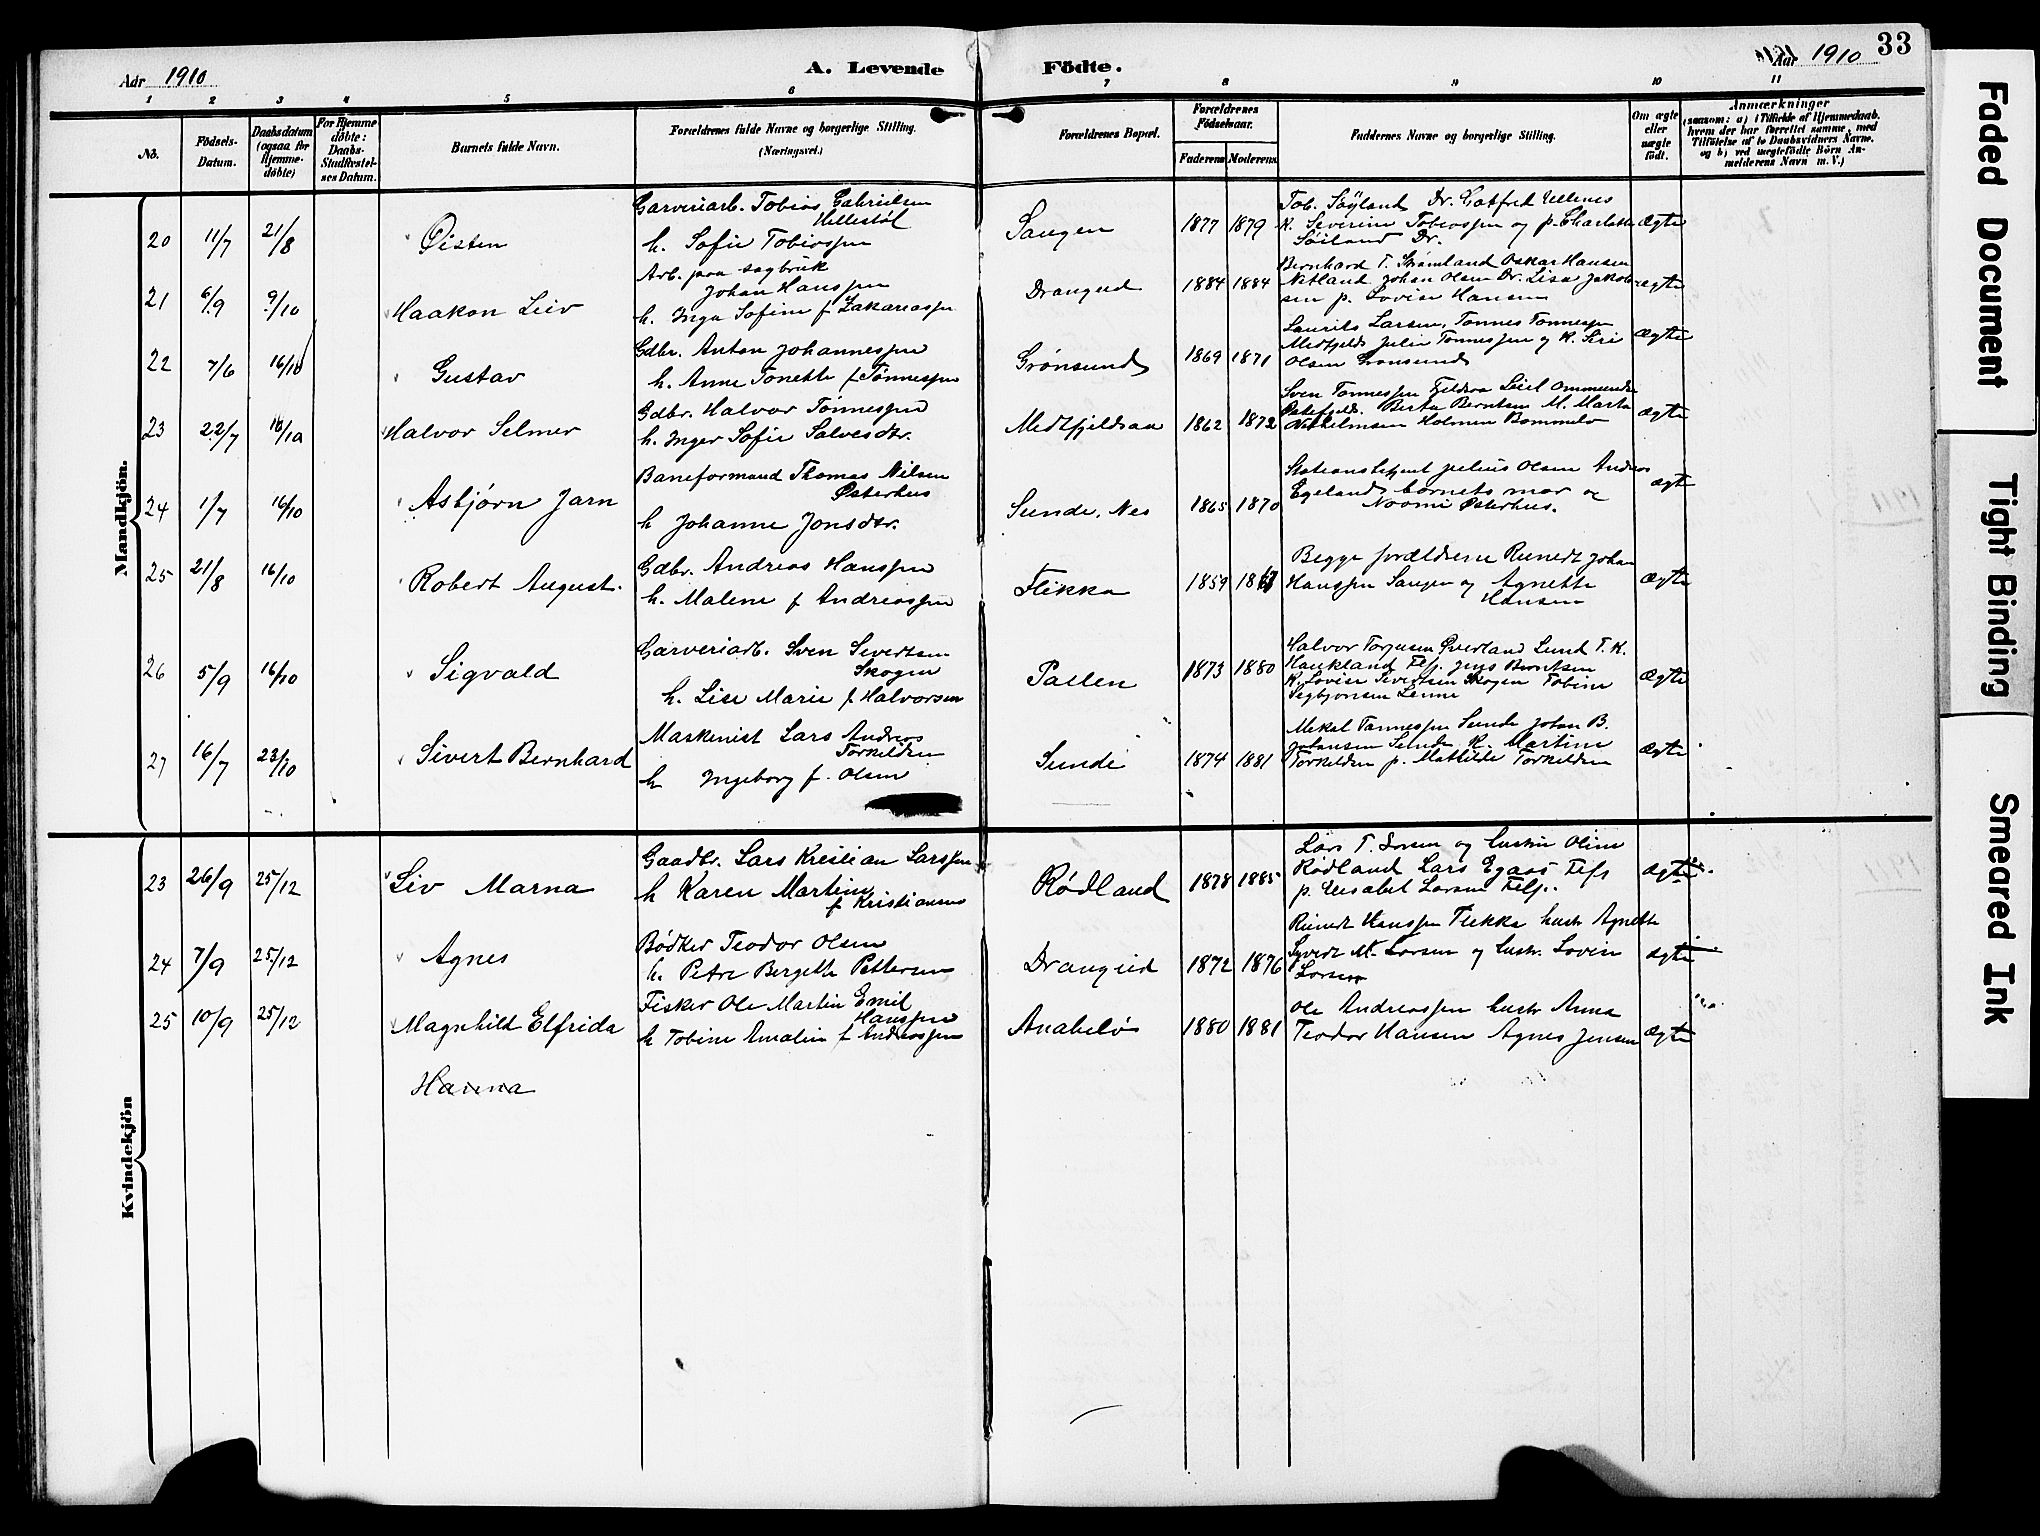 Aar 1910
A. Levende
Födte.
Aar 1910
33
1 2 3 4 5 6 7 8 9 10 11
No.
Födsels-
Datum.
Daabsdatum
(ogsaa for
Hjemme-
döbte)
For Hjemme
döbte:
Daabs-
Stadfæstel-
ses Datum.
Barnets fulde Navn.
Forældrenes fulde Navne og borgerlige Stilling.
(Næringsvei.)
Forældrenes Bopæl.
Forældrenes
Födselsaar.
Faderens
Moderens
Faddernes Navne og borgerlige Stilling.
Om ægte
eller
uægte
födt.
Anmærkninger
(saasom: a) i Tilfælde af Hjemmedaab,
hvem der har forrettet samme, med
Tilföielse af to Daabsvidners Navne,
og b) ved uægtefödte Börn An-
melderens Navn m. V.)
Mandkjön.
20 11/7 21/8 Øisten
Garveriarb. Tobias Gabrielsen
Hellestøl
h. Sofie Tobiassen
Saugen 1877 1879
Tob. Søyland Dr. Gotfred Ullenes
K. Severine Tobiassen og p. Charlotte
Søiland Dr.
Ægte
21 6/9 9/10 Haakon Leiv
Arb. paa sagbruk
Johan Hanssen
h. Inga Sofine f Zakariassen
Drangeid 1884 1884
Bernhard T. Strømland Oskar Hansen
Netland Johan Olsen Dr. Lisa Jakob-
sen p. Lovise Hansen
ægte
22 7/6 16/10 Gustav
Gdbr. Anton Johannessen
h. Anne Tonette f Tønnessen
Grønsund 1869 1871
Laurits Larsen, Tønnes Tønnessen
Medfjeld Julie Tønnessen og K. Siri
Olsen Grønsund
Ægte
23 22/7 16/10 Halvor Selmer
Gdbr. Halvor Tønnessen
h. Inger Sofie Salvesdtr.
Medfjeldsaa 1862 1872
Sven Tønnessen Berta Berntsen M. Marta
Vilhelmsen Holmen
ægte
24 1/7 16/10 Asbjørn Jarn
Baneformand Thomas Nilsen
Østerhus
h Johanne Jonsdtr.
Sunde, Nes 1865 1870
Stationsbetjent Julius Olsen Andreas
Egeland barnets mor og
Noomi Østerhus.
ægte
25 21/8 16/10 Robert August
Gdbr. Andreas Hanssen
h. Malene f Andreassen
Flikka 1859
Begge forældrene Reinedt Johan
Hanssen Saugen og Agnette
Hansen
Ægte
26 5/9 16/10 Sigvald
Garveriarb. Sven Severtsen
Skogen
h. Lise Marie f Halvorsen
Paelen 1873 1880
Halvor Torjusen Øverland Lund T. K.
Haukland Flf. Jens Berntsen
K. Lovise Severtsen Skogen Tobine
Segbjornsen Lenne
Ægte
27 16/7 23/10 Sivert Bernhard
Maskenist Lars Andreas
Torkildsen
h Ingeborg f. Olsen
Sunde 1874 1881
Mekal Tønnessen Sunde Johan B.
Johansen Sunde K. Martine
Torkildsen p. Mathilde Torkildsen
Ægte
Kvindekjön
23 26/9 25/12 Liv Marna
Gaadbr. Lars Kristian Larssen
h Karen Martine
f Kristiansen
Rødland 1878 1885
Lars T. Larsen og hustru Oline
Rødland Lars Egaas Flf
p. Elisabet Larsen Flf.
ægte
24 7/9 25/12 Agnes
Bødker Teodor Olsen
h. Petra Bergette Pettersen
Drangeid 1872 1876
Reinert Hanssen Flikka hustr Agnette
Syvert M. Larsen og hustr. Lovise
Larsen
ægte
25 10/9 25/12 Magnhild Elfrida
Hanna
Fisker Ole Martin Emil
Hanssen
h Tobine Amalie f Andreassen
Anabeløi 1880 1881
Ole Andreassen hustr Anna
Teodor Hansen Agnes Jensen
Ægte
Faded Document
Tight Binding
Smeared Ink